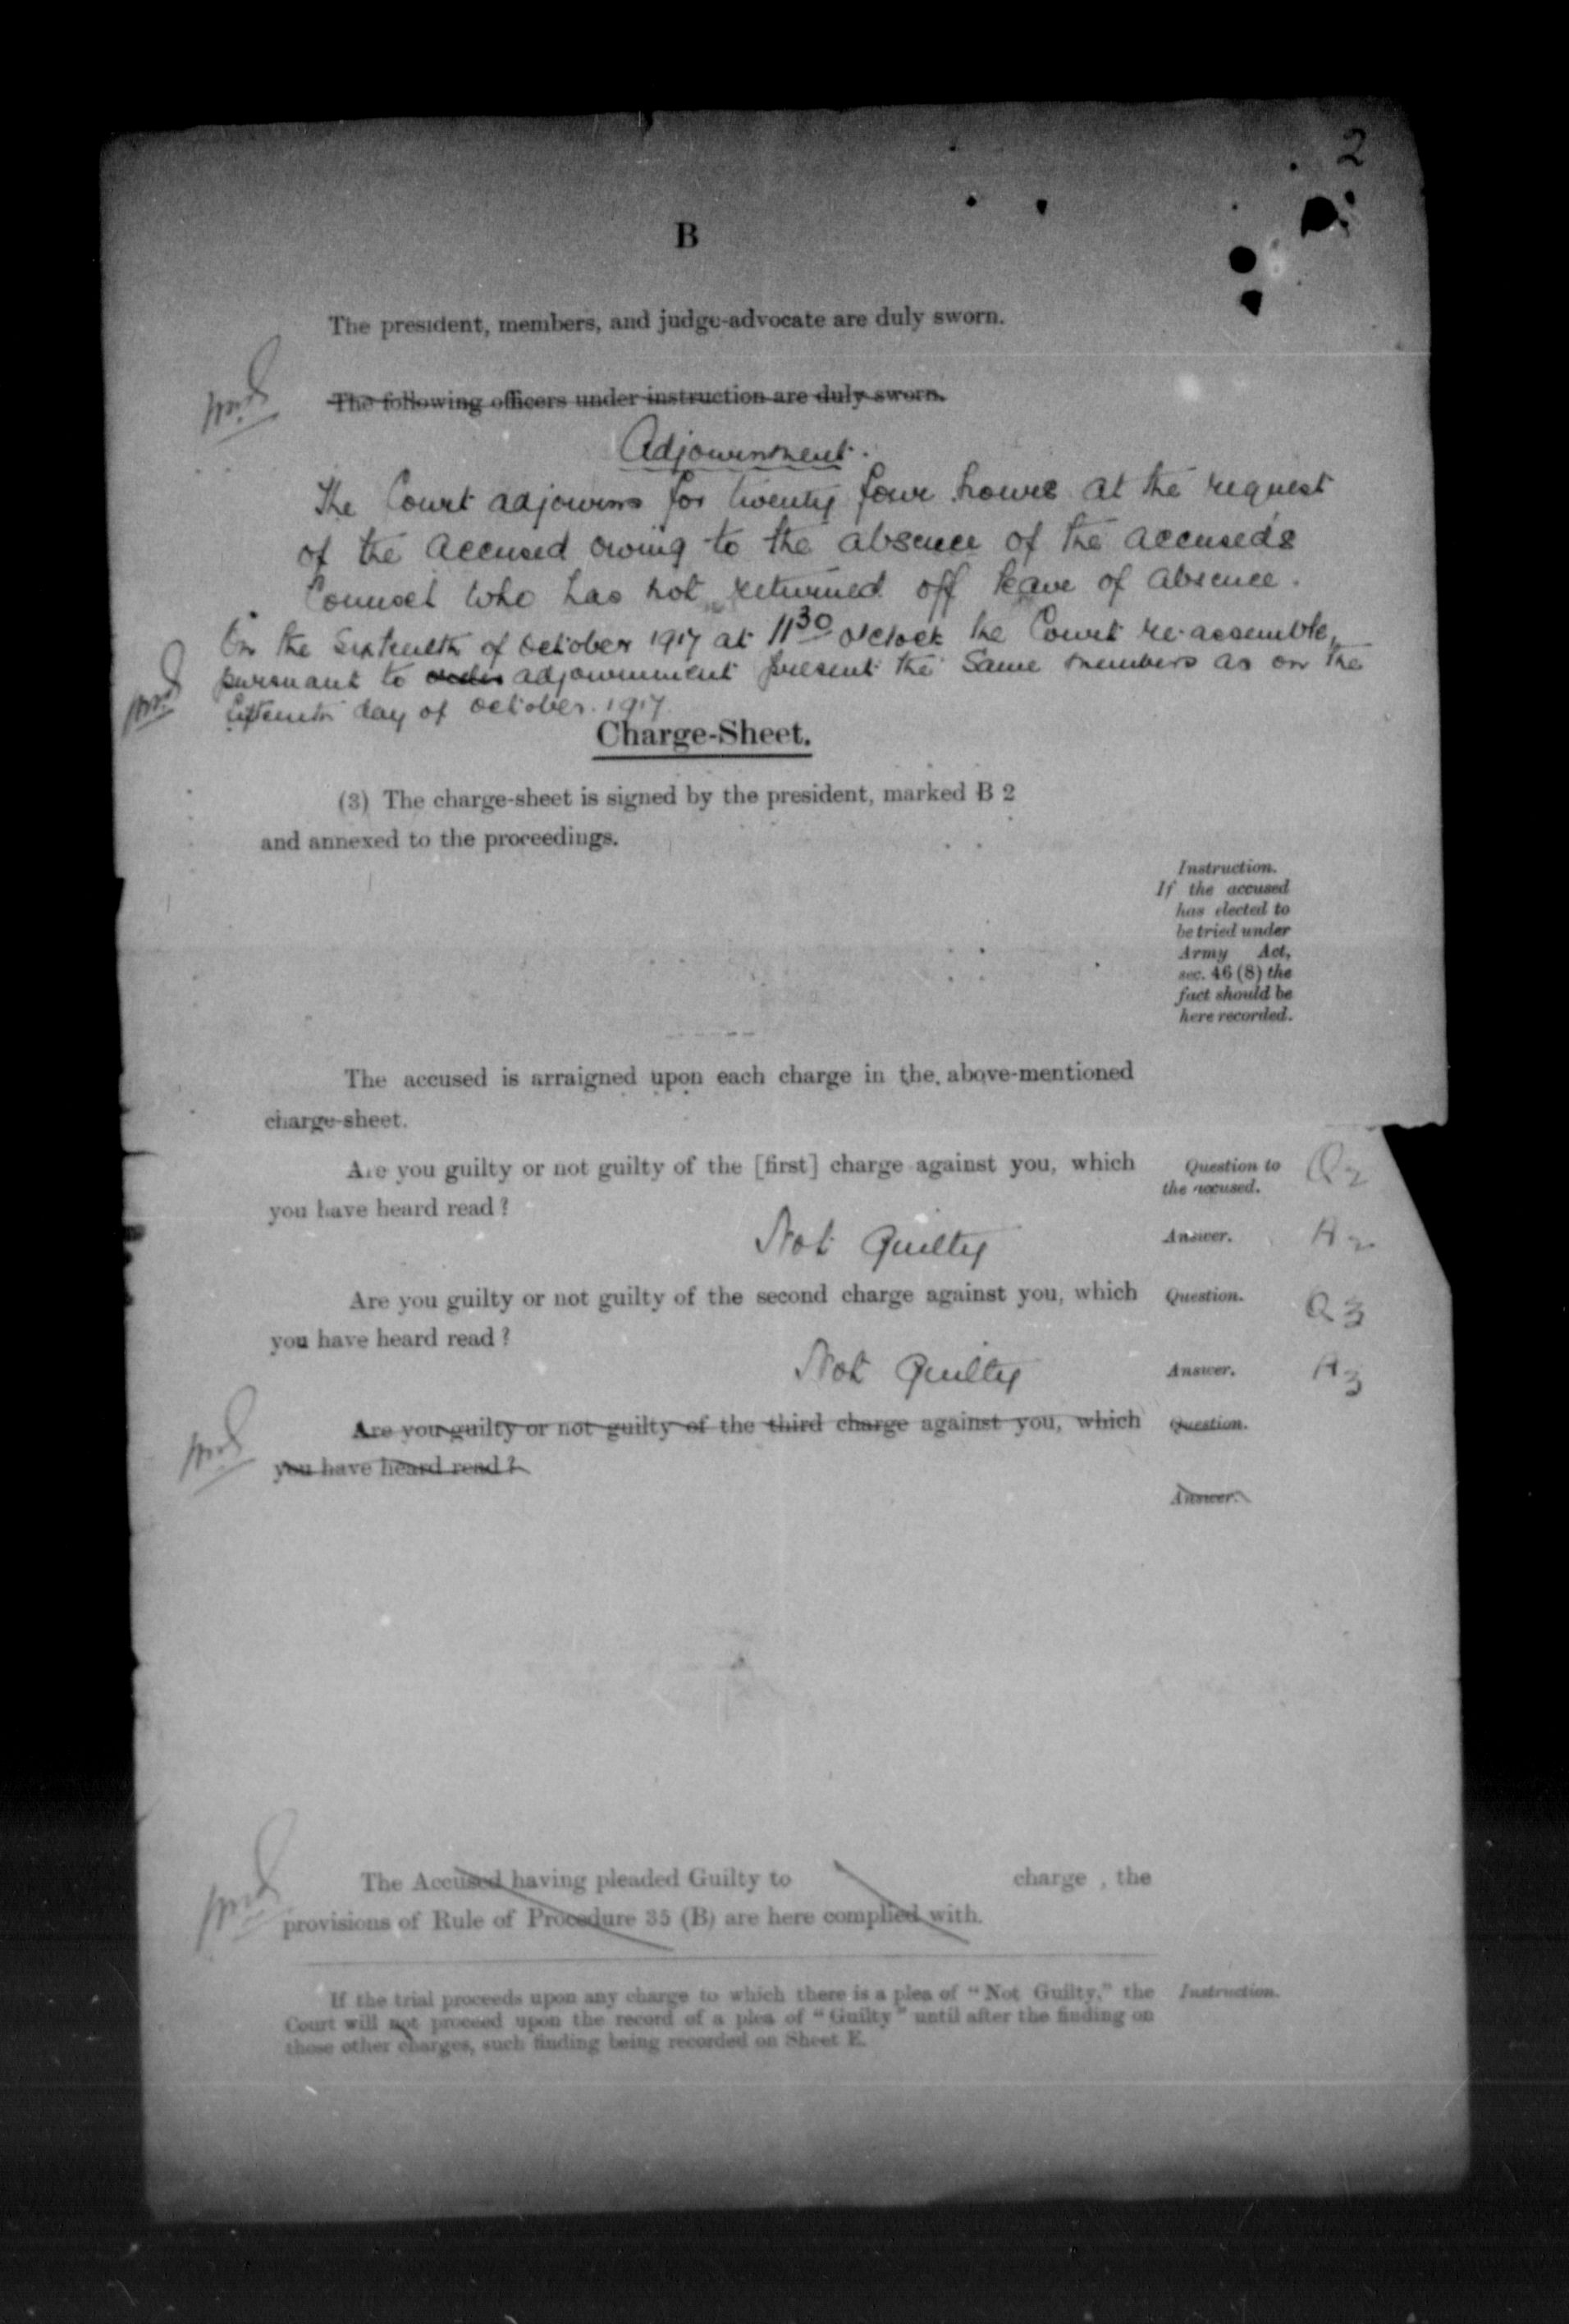 2
B
The president, members, and judge-advocate are duly sworn.
The following officers under instruction are duly sworn.
Adjournment.
The Court adjourns for twenty four hours at the request
of the accused owing to the absence of the accused's
Counsel who has not returned off leave of absence.
On the Sixteenth of October 1917 at 11 30 oclock the Court re-assemble,
pursuant to order adjournment present the same members as on the
fifteenth day of October. 1917.
Charge-Sheet.
(3) The charge-sheet is signed by the president, marked B 2
and annexed to the proceedings.
Instruction.
If the accused
has elected to
be tried under
Army Act,
sec. 46 (8) the
fact should be
here recorded.
The accused is arraigned upon each charge in the above-mentioned
charge-sheet.
Are you guilty or not guilty of the [first] charge against you, which
you have heard read?
Question to
the accused.
Q2
Not Guilty
Answer.
A2
Are you guilty or not guilty of the second charge against you, which
you have heard read?
Question.
Q3
Not Guilty
Answer.
A3
Are you guilty or not guilty of the third charge against you, which
you have heard read?
Question.
Answer.
The Accused having pleaded Guilty to charge , the
provisions of Rule of Procedure 35 (B) are here complied with.
If the trial proceeds upon any charge to which there is a plea of "Not Guilty," the
Court will not proceed upon the record of a plea of "Guilty" until after the finding on
those other charges, such finding being recorded on Sheet E.
Instruction.